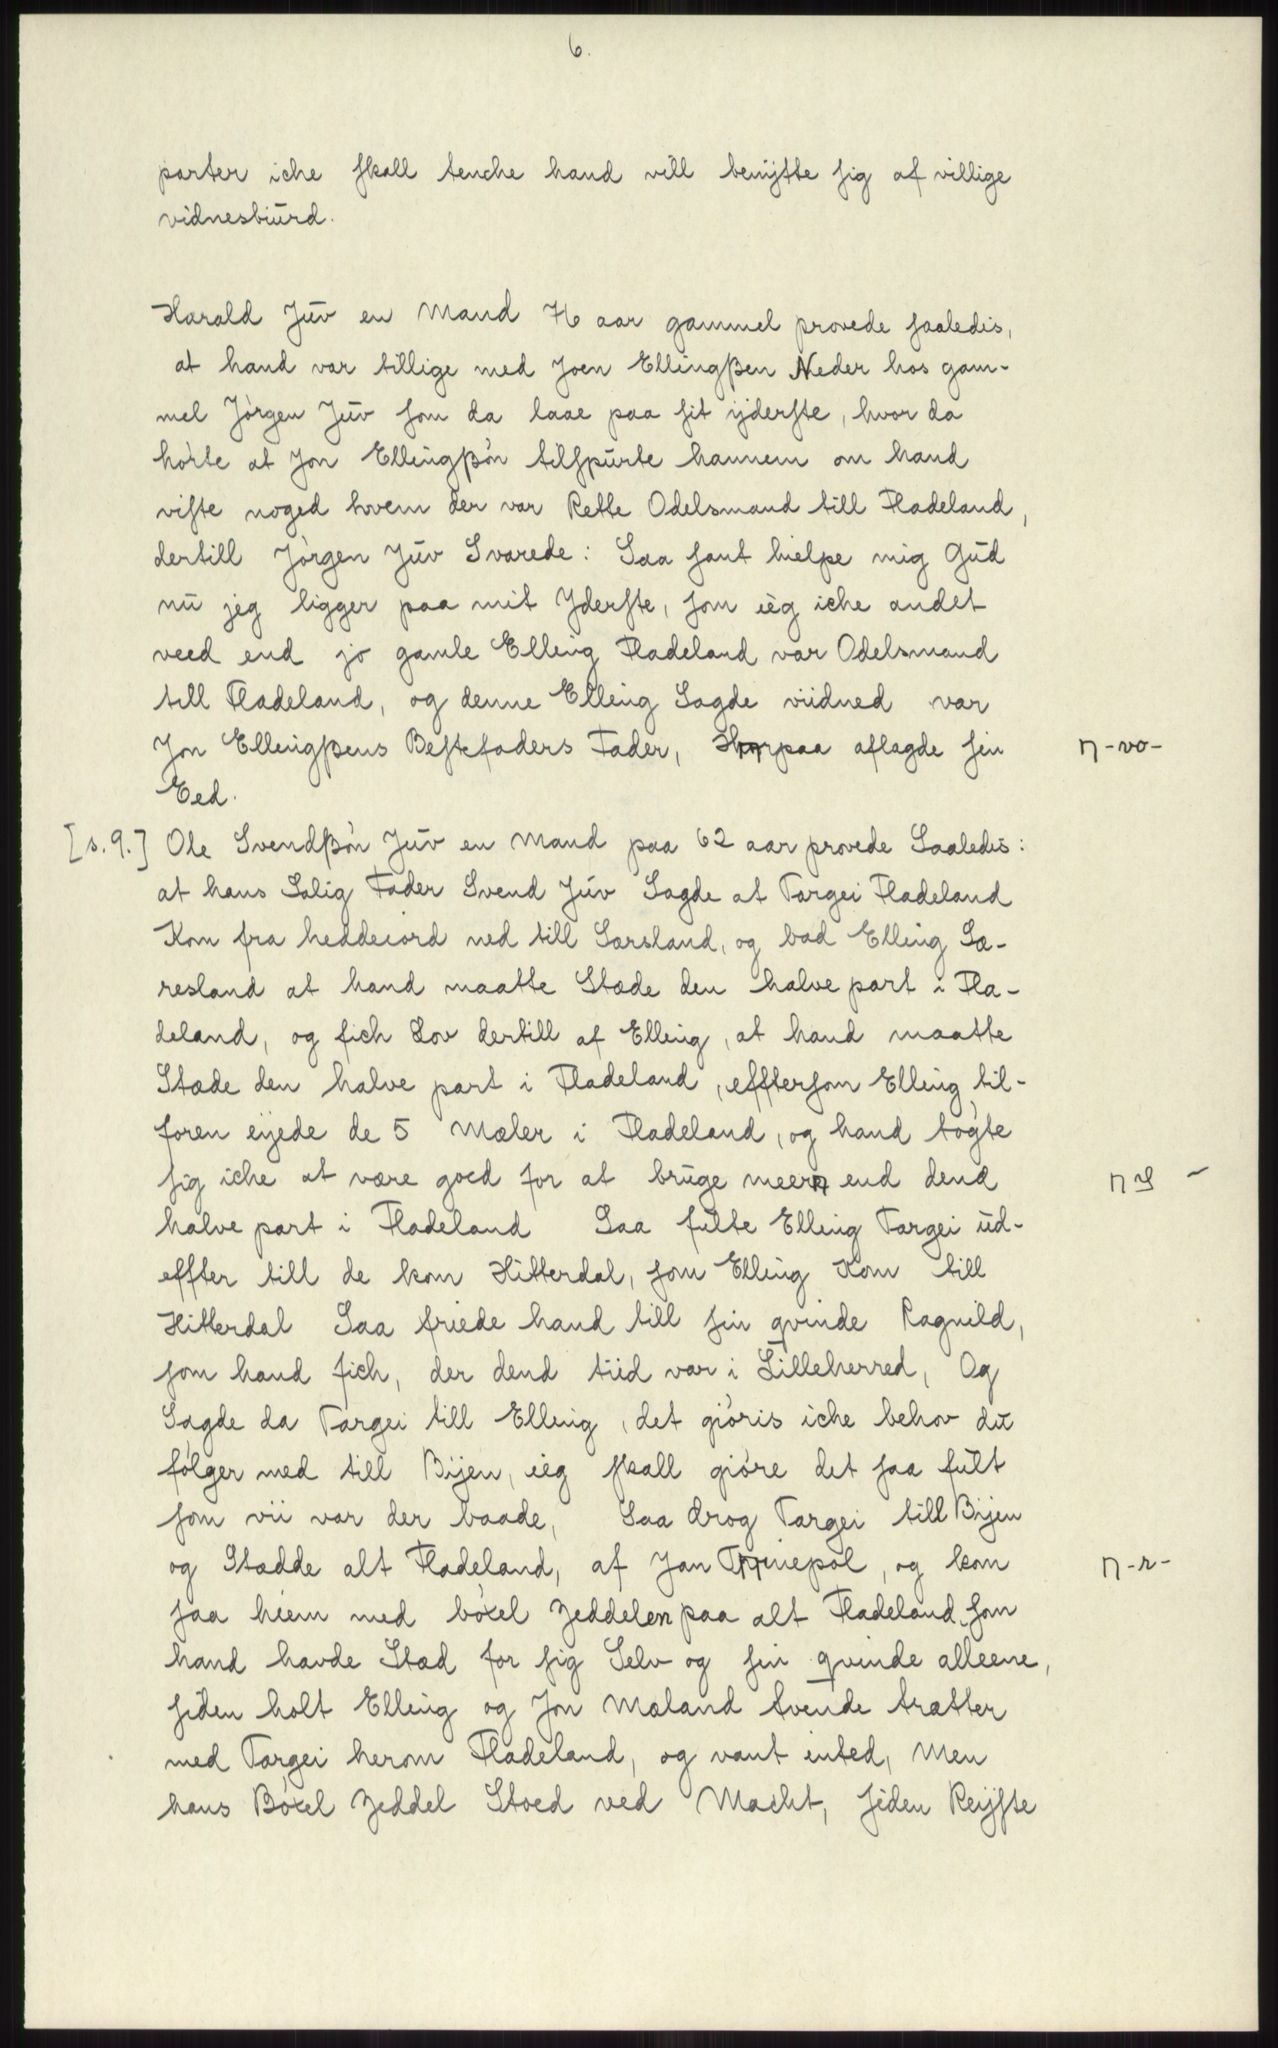 6.
parter iche skall tenche hand vill benytte sig af villige
vidnesbiurd.
Harald Juv en Mand 76 aar gammel provede saaledis,
at hand var tillige med Joen Ellingßen Neder hos gam-
mel Jørgen Juv som da laae paa sit yderste, hvor da
hørte at Jon Ellingßøn tilspurte hannem om hand
viste noged hvem der var Rette Odelsmand till Fladeland,
dertill Jørgen Juv Svarede: Saa sant hielpe mig Gud
nu jeg ligger paa mit Yderste, som ieg iche andet
veed end jo gamle Elling Fladeland var Odelsmand
till Fladeland, og denne Elling Sagde viidned var
Jon Ellingßens Bestefaders Fader, paa aflagde sin
⊓-vo-
Eed.
[s.9.] Ole Svendßøn Juv en Mand paa 62 aar provede Saaledis:
at hans Salig Fader Svend Juv Sagde at Targei Fladeland
Kom fra heddeiord ned till Sarsland, og bad Elling Sa-
resland at hand maatte Stæde den halve part i Fla-
deland, og fich Lov dertill af Elling, at hand maatte
Stæde den halve part i Fladeland, efftersom Elling til-
foren eyede de 5 Mæler i Fladeland, og hand tøgte
sig iche at være goed for at bruge meere end dend
⊓ S -
halve part i Fladeland Saa fulte Elling Targei ud-
effter till de kom Hitterdal, som Elling Kom till
Hitterdal Saa friede hand till sin qvinde Ragnild,
som hand fich, der dend tiid var i Lilleherred, Og
Sagde da Targei till Elling, det giøris iche behov du
følger med till Byen, ieg skall giøre det saa fult
som vii var der baade, Saa drog Targei till Byen
og Stædde alt Fladeland, af Jan , og kom
⊓-r-
saa hiem med bøxel Zeddelen paa alt Fladeland som
hand havde Stæd for sig Selv og sin qvinde alleene,
siden holt Elling og Jon Mæland tvende trætter
med Targei herom Fladeland, og vant inted, Men
hans Bøxel Zeddel Stoed ved Macht, siden Reyste